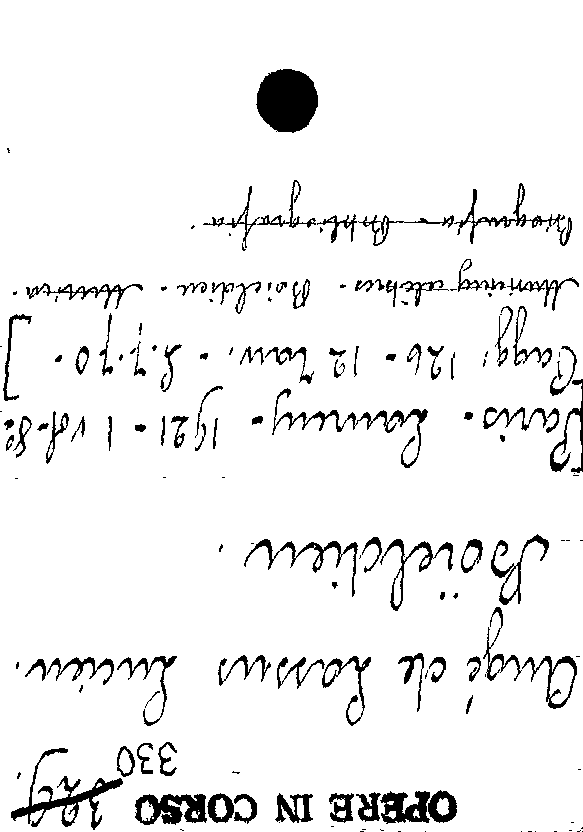 OPERE IN CORSO
330
Augé de Lassus Lucien.
Boïeldieu.
[Paris. Laurens. 1921. 1 vol. 8°
Pagg. 126. 12 Tav. . L. 7.70. ]
Boieldieu. Musica.
Biografia Bibliografia.